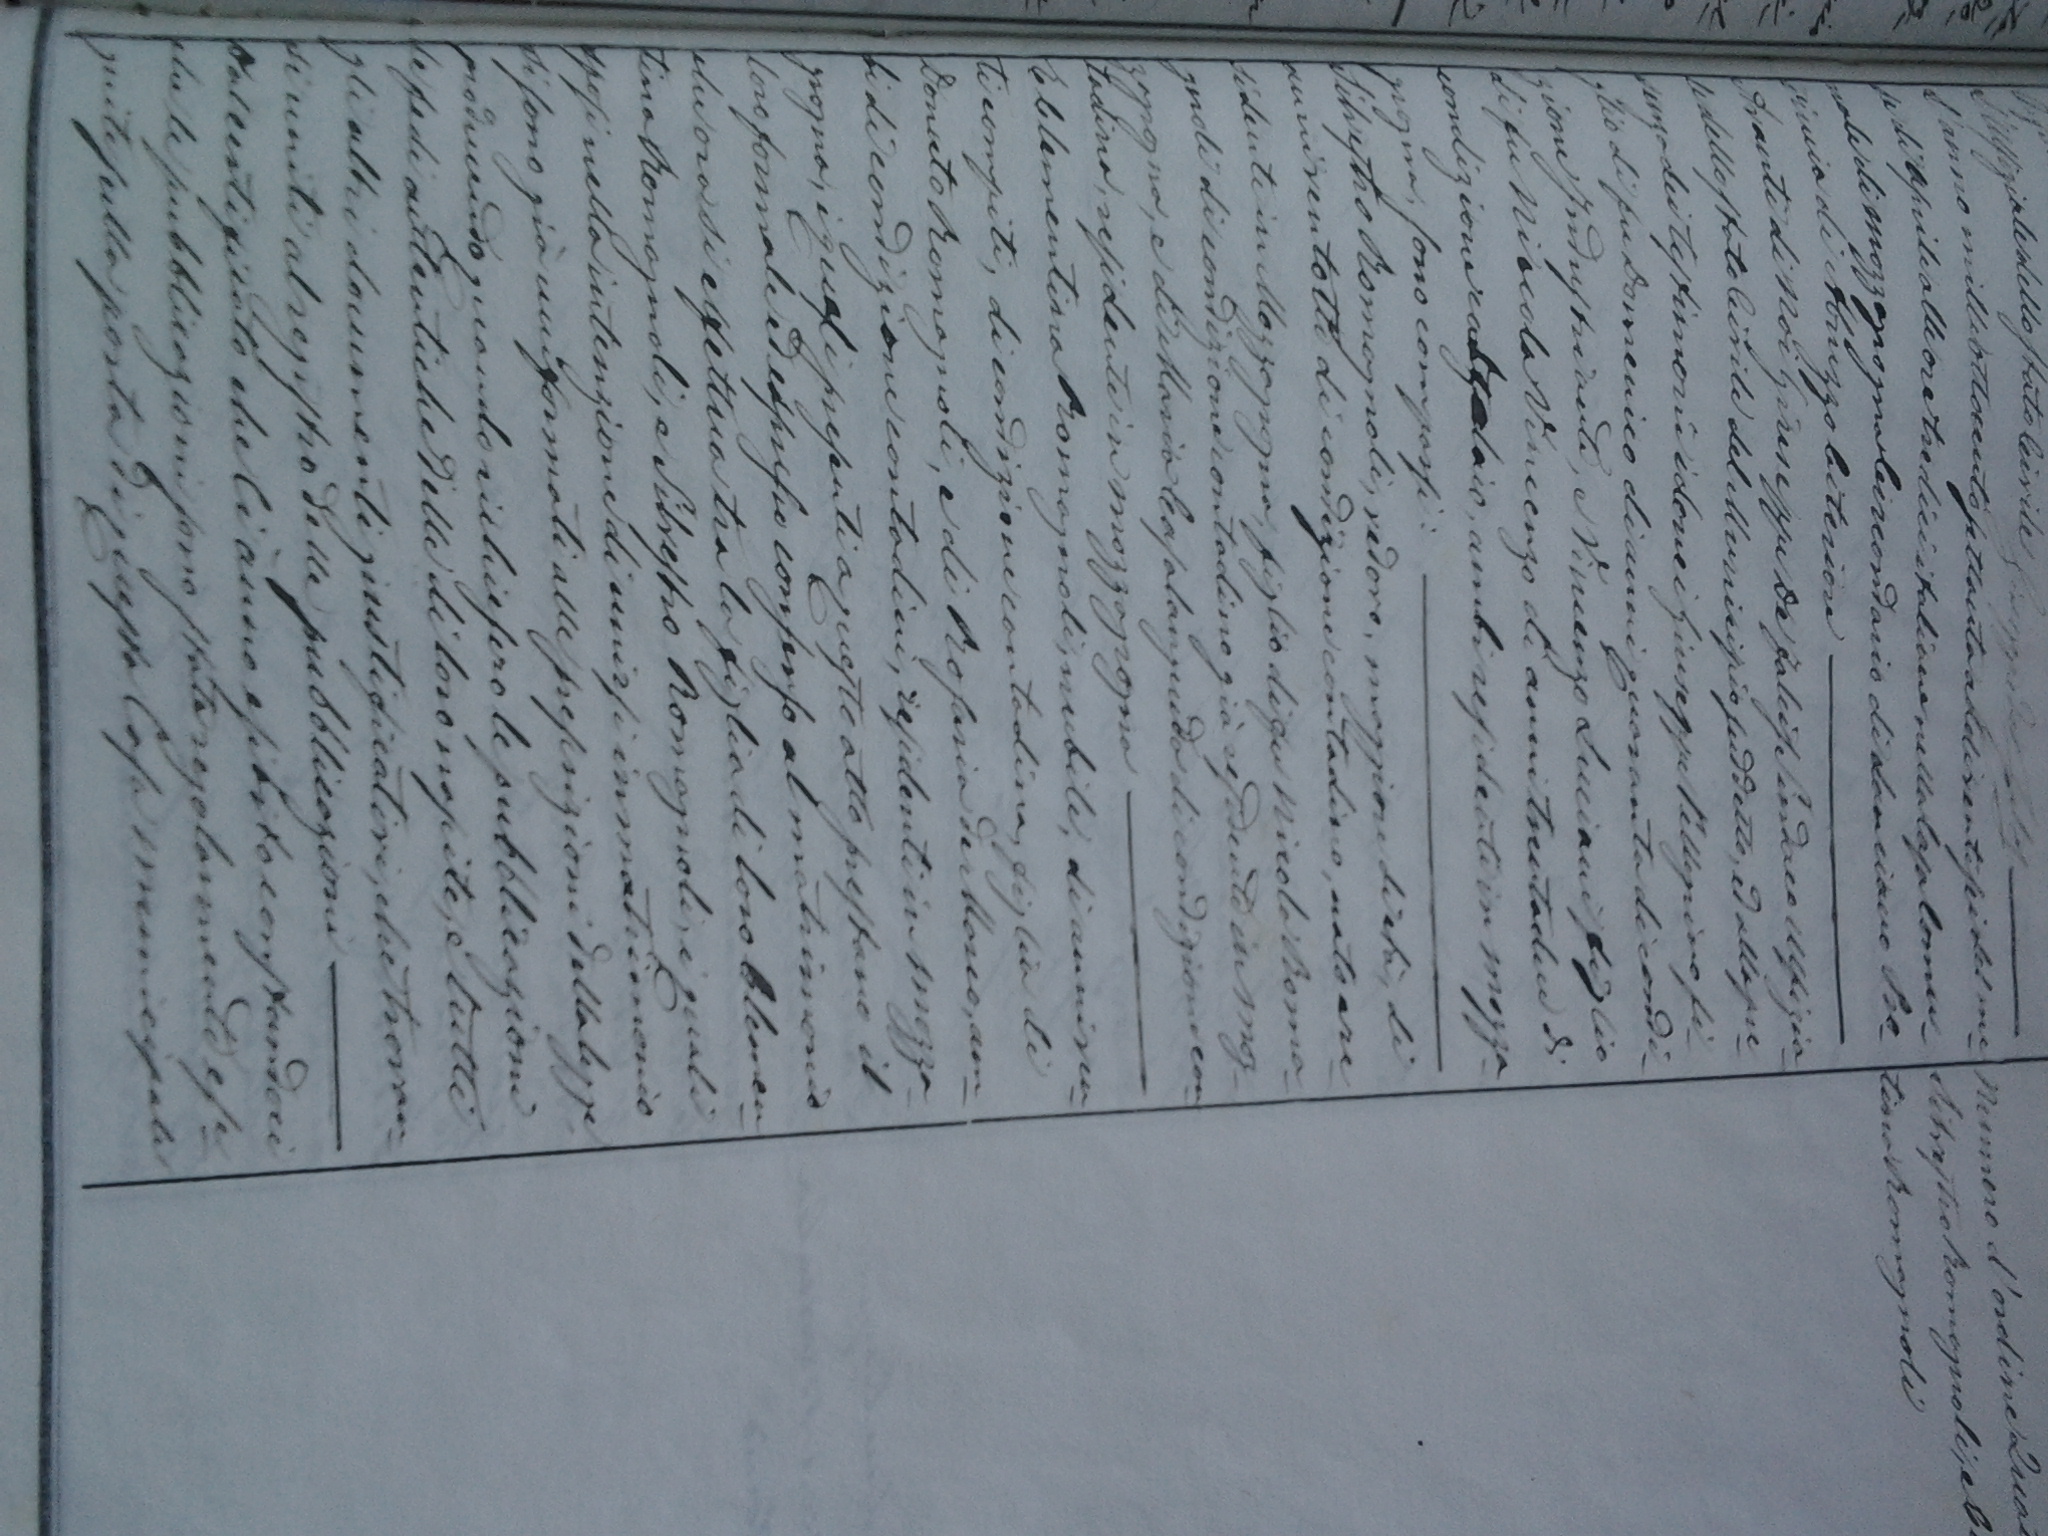 L'Uffiziale dello Stato Civile
L'anno mille ottocento settanta addì ventisei del me-
se di Aprile alle ore tredici italiane nella Casa Comu-
nale di Mozzagrogna Circondario di Lanciano Pro-
vincia di Abruzzo Citeriore
Avanti di Noi Giuseppe De Falcis Sindaco Uffizia-
le dello Stato Civile del Municipio suddetto, ed alla pre-
senza dei testimonii idonei Giuseppe Pellegrino fi-
glio di fu Domenico di anni quaranta di condi-
zione Industriante, e Vincenzo Luciani figlio
di fu Niccola Vincenzo di anni trentadue di
condizione calzolaio, ambi residenti in Mozza-
grogna, sono comparsi:
Silvestro Romagnoli, vedovo, maggiore di età, di
anni ventotto di condizione contadino, nato e re-
sidente in Mozzagrogna, figlio di fu Nicola Roma-
gnoli di condizione contadino già residente in Moz-
zagrogna, e di Maria Casalanguida di condizione con-
tadina, residente in Mozzagrogna
E Clementina Romagnoli, nubile, di anni ven-
ti compiti, di condizione contadina, figlia di
Donato Romagnoli, e di Rosaria de Marco, am-
bi di condizione contadini, residenti in Mozza-
grogna, i quali presenti a questo atto prestano il
loro formale ed espresso consenso al matrimonio
che ora si effettua tra la figlia di loro Clemen-
tina Romagnoli, e Silvestro Romagnoli, i quali
sposi nella intenzione di unirsi in matrimonio
si sono già uniformati alle prescrizioni della legge
producendo quando richiesero le pubblicazioni
le fedi autentiche delle di loro nascite, e tutti
gli altri documenti giustificativi, che trovan-
si uniti al registro delle pubblicazioni
Dal certificato che Ci anno esibito constandoci
che le pubblicazioni sono state regolarmente ese-
guite sulla porta di questa Casa Municipale
Numero d'ordine
Silvestro Romagnoli, e Cl
tina Romagnoli